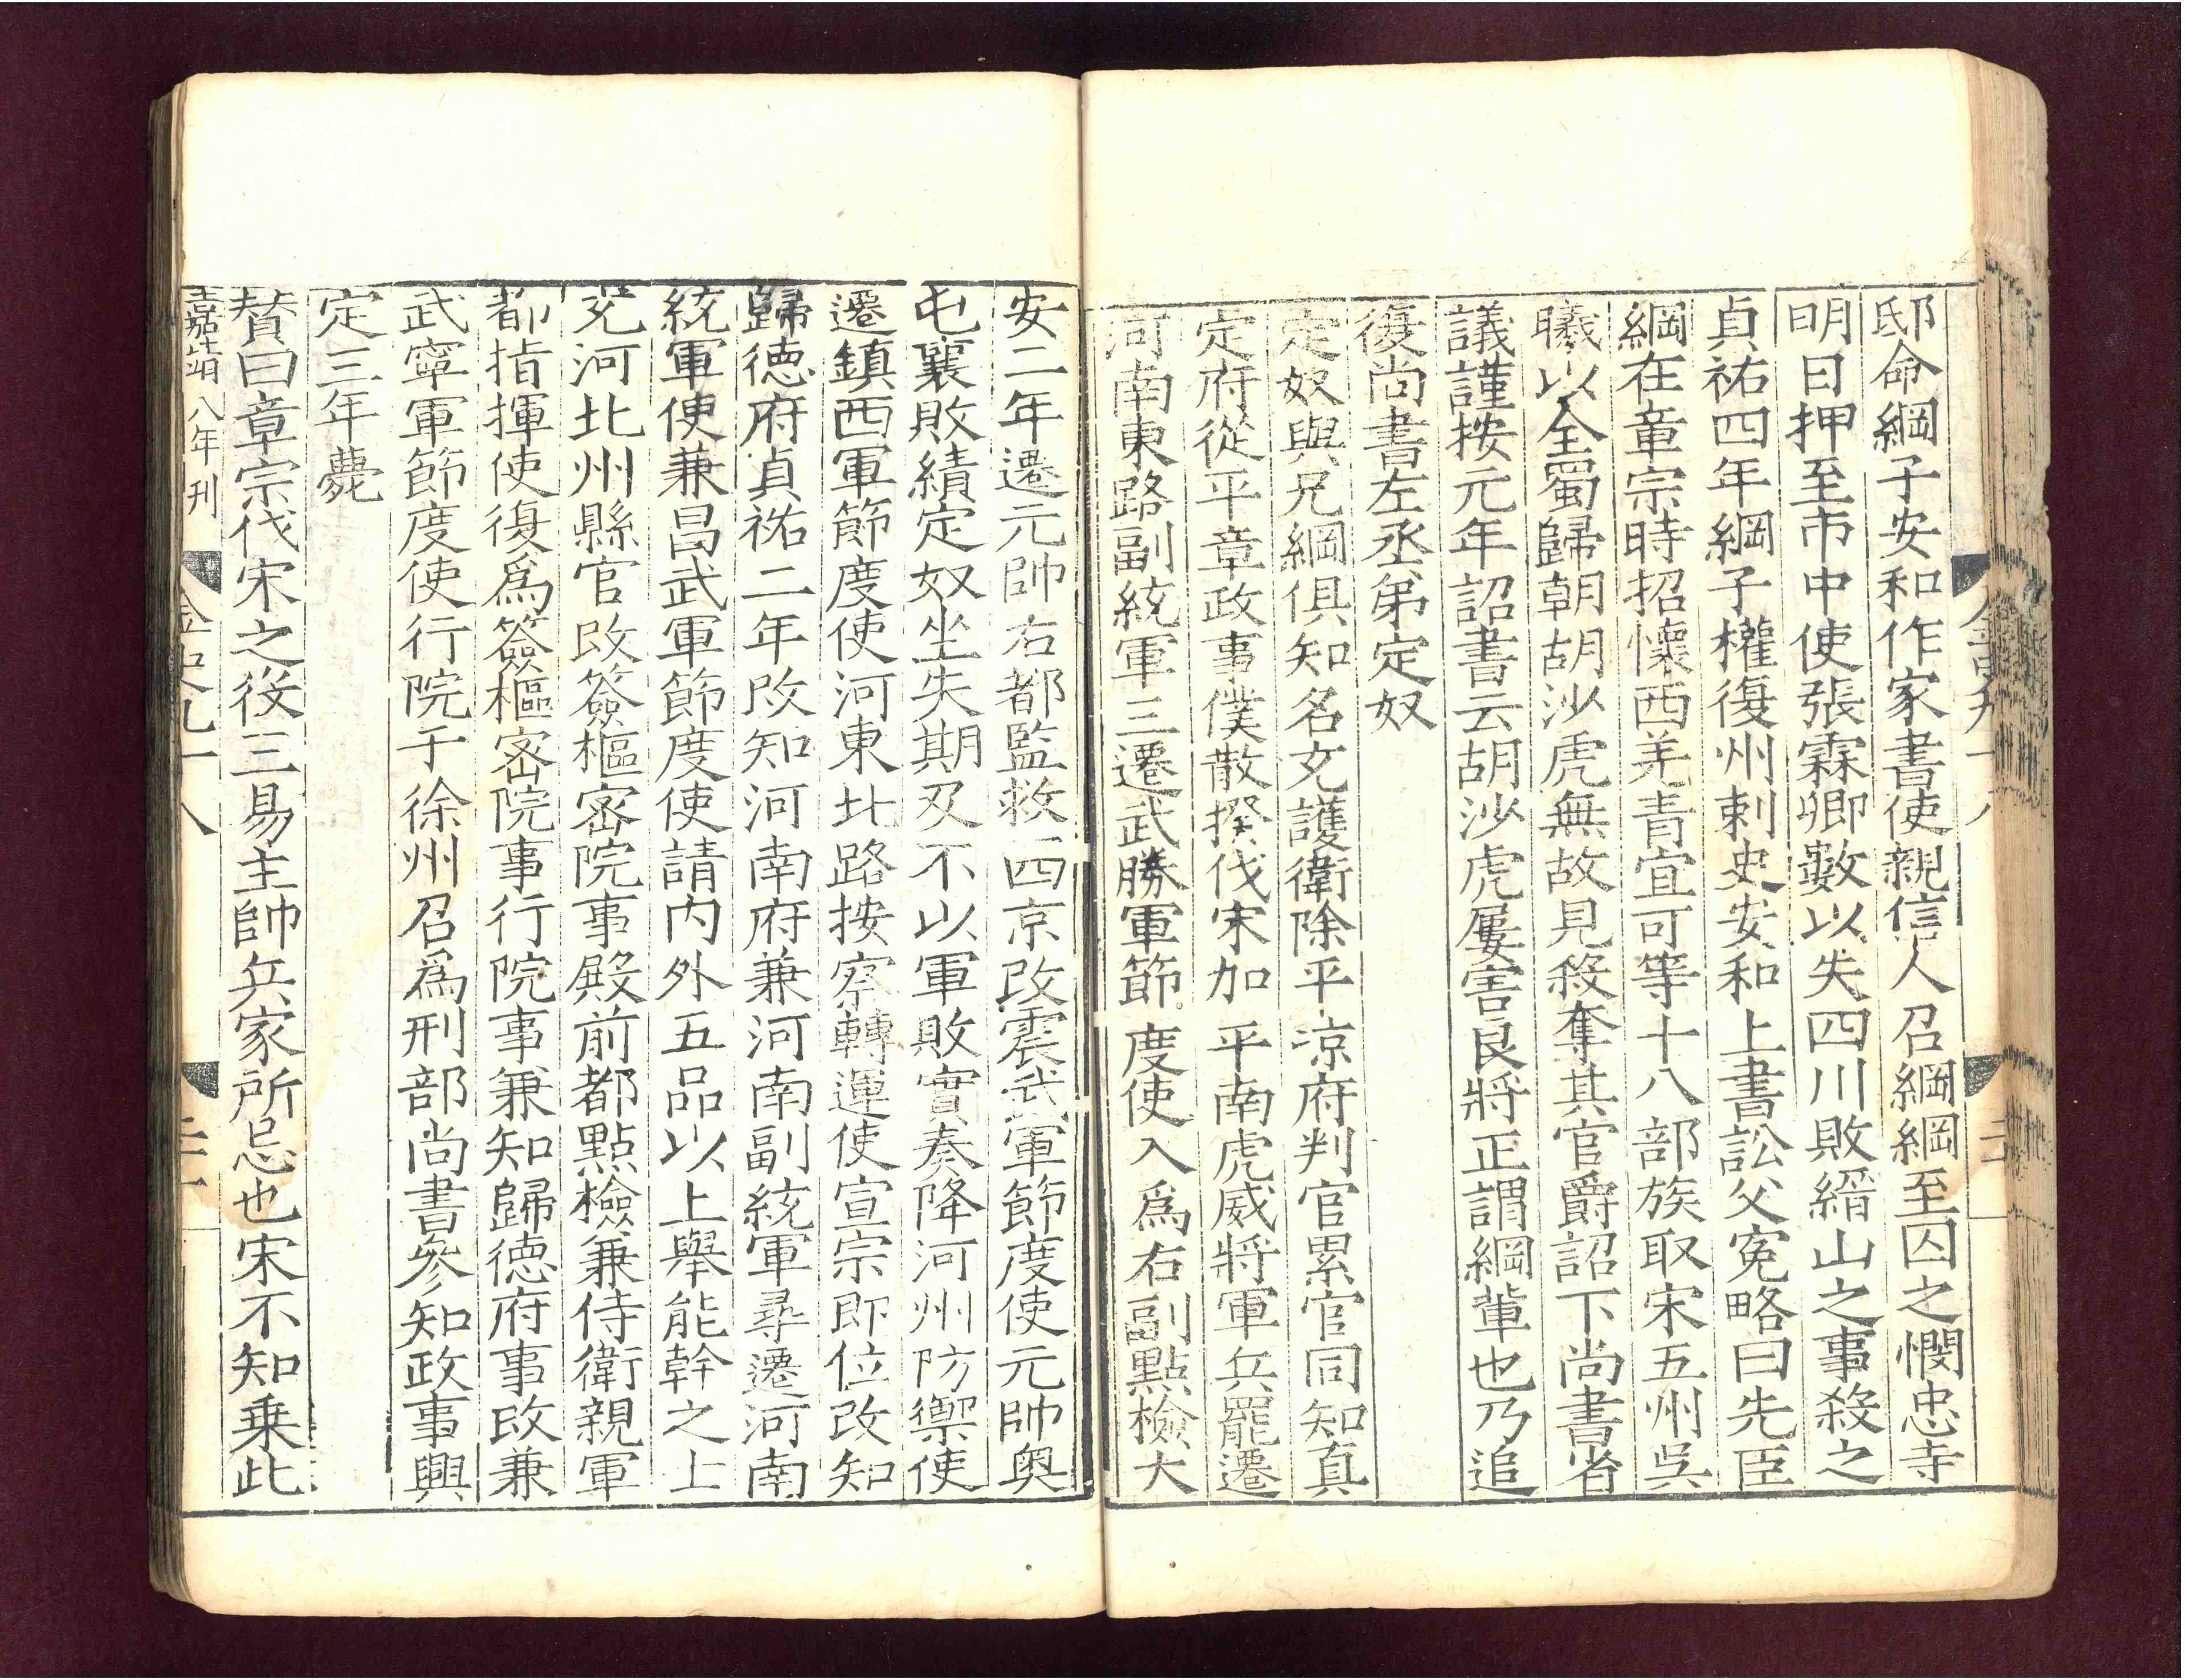 邸命綱子安和作家書使親信人召綱綱至囚之憫忠寺
明日押至市中使張霖卿數以失四川敗縉山之事殺之
貞祐四年綱子權復州刺史安和上書訟父冤略曰先臣
綱在章宗時招懷西羌青宜可等十八部族取宋五州吳
曦以全蜀歸朝胡沙虎無故見殺奪其官爵詔下尚書省
議謹按元年詔書云胡沙虎屢害良將正謂綱軰也乃追
復尚書左丞弟定奴
定奴與兄綱俱知名充護衛除平凉府判官累官同知真
定府從平章政事僕散揆伐宋加平南虎威將軍兵罷遷
河南東路副統軍三遷武勝軍節度使入爲右副點檢大
安二年遷元帥右都監救西京改震武軍節度使元帥奥
屯襄敗績定奴坐失期及不以軍敗實奏降河州防禦使
遷鎮西軍節度使河東北路按察轉運使宣宗即位改知
歸德府貞祐二年改知河南府兼河南副統軍尋遷河南
統軍使兼昌武軍節度使請内外五品以上舉能幹之士
充河北州縣官改簽樞密院事殿前都點檢兼侍衛親軍
都指揮使復爲簽樞密院事行院事兼知歸德府事改兼
武寧軍節度使行院于徐州召爲刑部尚書參知政事興
定三年薨
賛曰章宗伐宋之役三易主帥兵家所忌也宋不知乗此
嘉靖八年刊
金史九十八
二十一